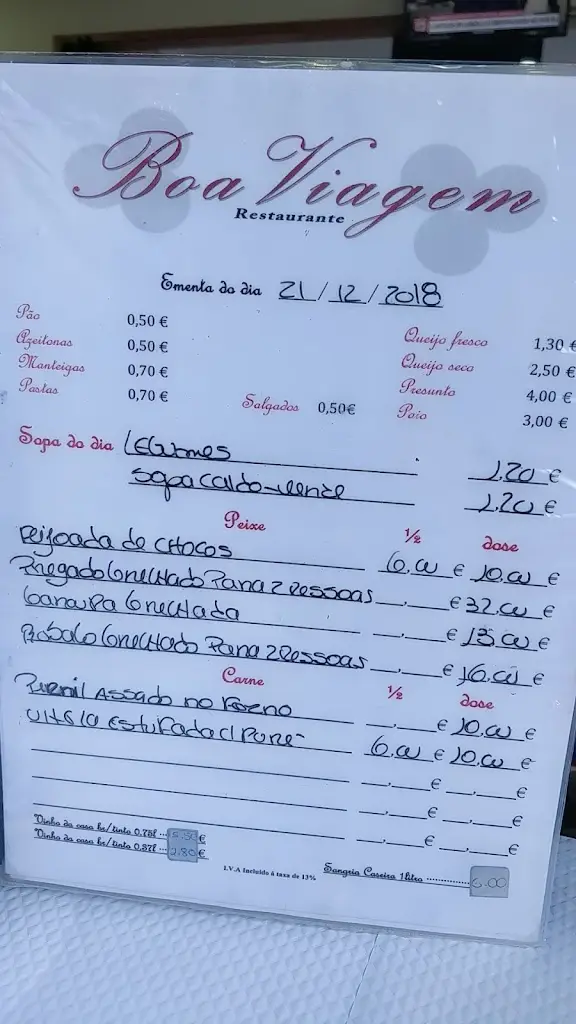 Boa Viagem
Restaurante
Ementa do dia 21/12/2018
Pão 0,50 €
Azeitonas 0,50 €
Manteigas 0,70 €
Pastas 0,70 €
Salgados 0,50€
Queijo fresco 1,30 €
Queijo seco 2,50 €
Presunto 4,00 €
Paio 3,00 €
Sopa do dia Legumes 1,20 €
Sopa Caldo-Verde 1,20 €
Peixe ½ dose
Feijoada de Chocos 6,00 € 10,00 €
Pregado Grelhado Para 2 Pessoas __,__ € 32,00 €
Garoupa Grelhada __,__ € 13,00 €
Robalo Grelhado Para 2 Pessoas __,__ € 16,00 €
Carne ½ dose
Pernil Assado no Forno __,__ € 10,00 €
Vitela Estufada c/ Puré 6,00 € 10,00 €
__,__ € __,__ €
__,__ € __,__ €
__,__ € __,__ €
Vinho da casa br/tinto 0,75l ... €
Vinho da casa br/tinto 0,37l ... 2.80 €
I.V.A Incluído à taxa de 13%
Sangria Caseira 1litro ............ 6.00